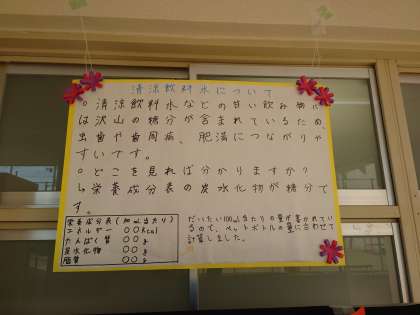 清涼飲料水について
○清涼飲料水などの甘い飲み物に
は沢山の糖分が含まれているため、
虫歯や歯周病、肥満につながりや
すいです。
○どこを見れば分かりますか？
↳栄養成分表の炭水化物が糖分で
す。
栄養成分表(100ml当たり)
エネルギー ○○kcal
たんぱく質 ○○g
炭水化物 ○○g
脂質 ○○g
だいたい100ml当たりの量が書かれてい
るので、ペットボトルの量に合わせて
計算しました。